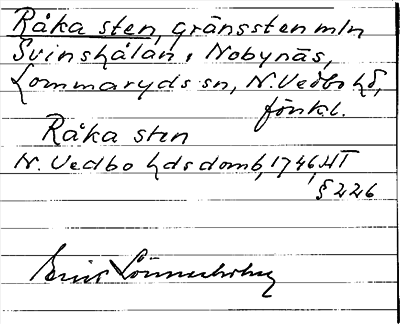 Råka sten, gränssten mln
Svinshålan o Nobynäs,
Lommaryds sn, N. Vedbo hd,
förkl.
Råka sten
N. Vedbo hds domb, 1746, HT
§ 226